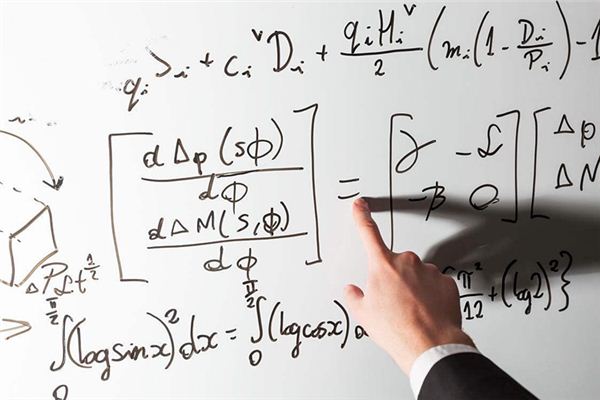 qᵢ>ᵢ + cᵢᵛDᵢ + qᵢHᵢᵛ/2 (mᵢ(1 - Dᵢ/Pᵢ) - 1
[dΔp(sϕ)/dϕ] = [γ -L] [Δp
[dΔM(s,ϕ)/dϕ] [-β 0] [ΔM
ΔP Lt^1/2
∫₀^π/2 (log sin x)² dx = ∫₀^π/2 (log cos x) π²/12 + (log 2)²}